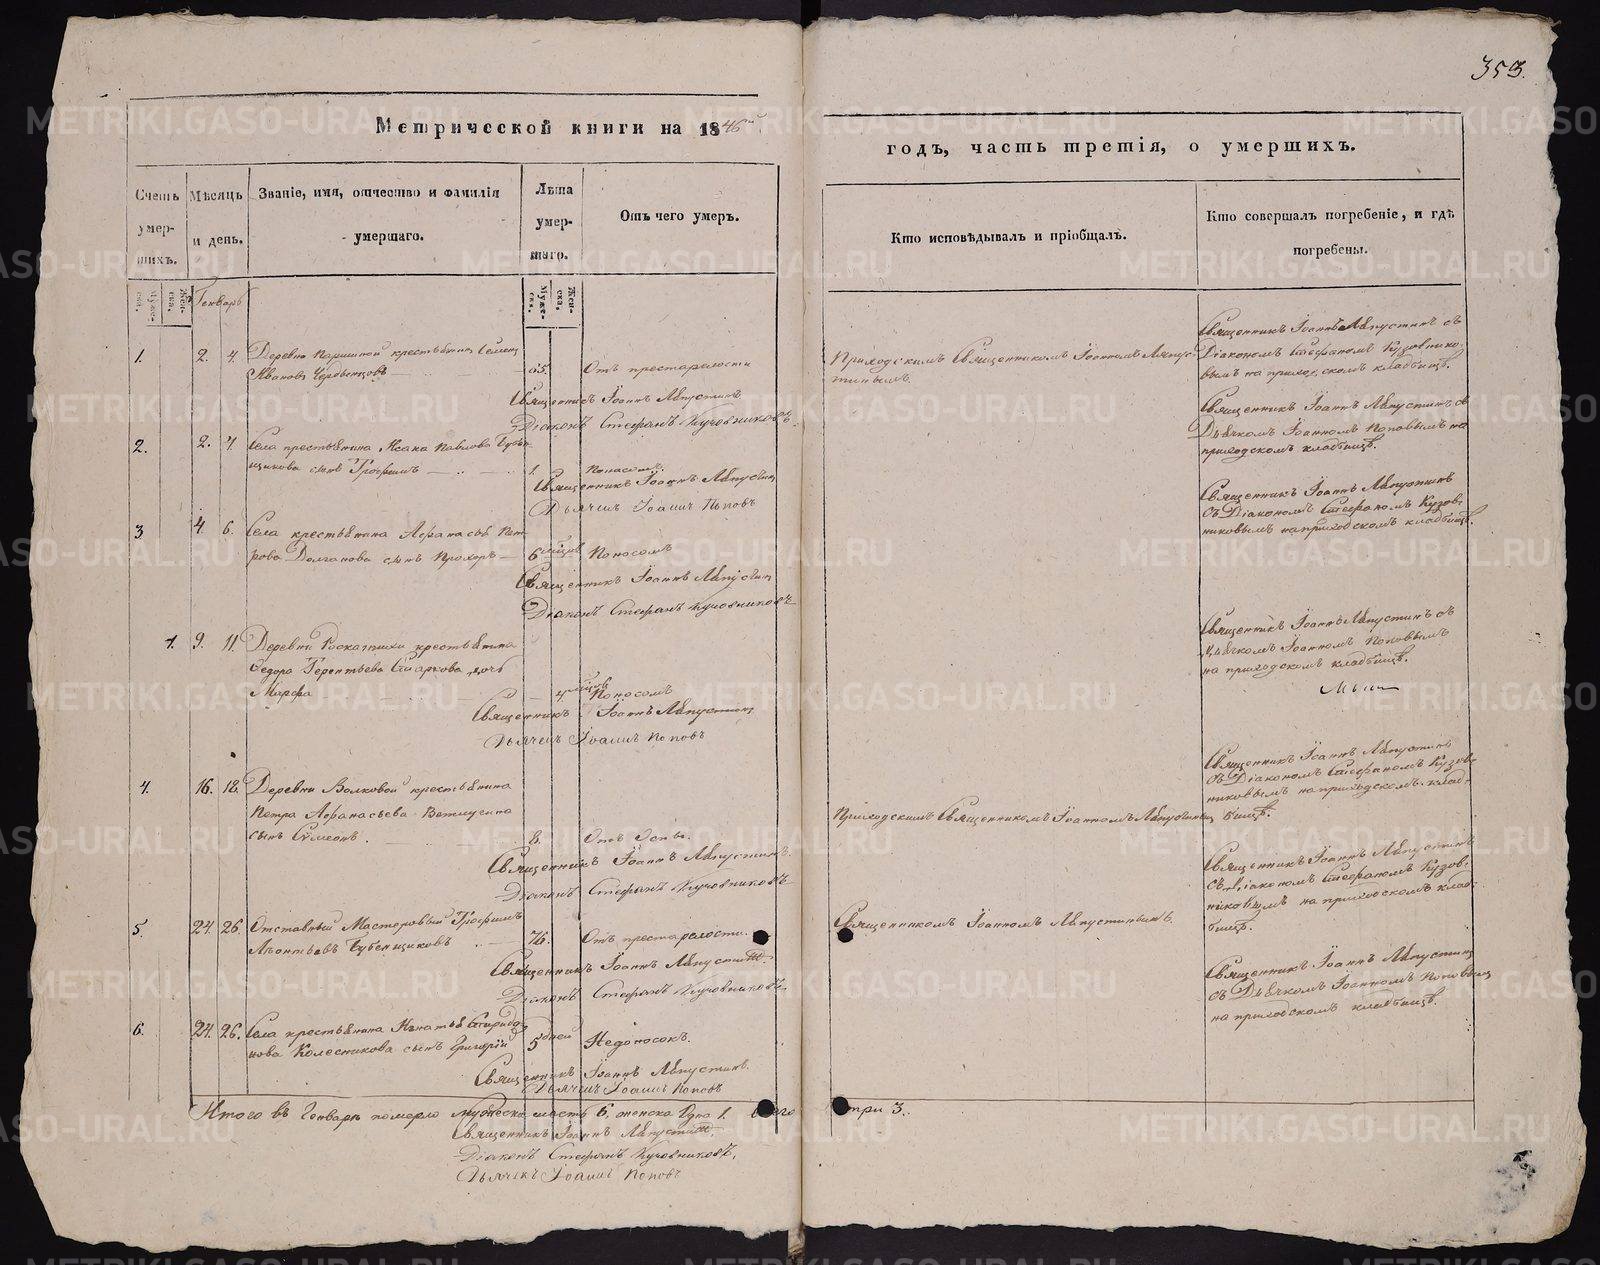 353.
Метрической книги на 1846й
годъ, часть третія, о умершихъ.
Счетъ умер-шихъ.
Мѣсяцъ и день.
Званіе, имя, отчество и фамилія умершаго.
Лѣта умер-шаго.
Отъ чего умеръ.
Кто исповѣдывалъ и пріобщалъ.
Кто совершалъ погребеніе, и гдѣ погребены.
Муже-ска.
Жен-ска.
Муже-ска.
Жен-ска.
Генварь
1. 2. 4. Деревни крестьянинъ Семенъ
Ивановъ
Отъ престарелости
Священникъ Іоаннъ Ляпустинъ
Діаконъ Стефанъ Кузовниковъ
Приходскимъ Священникомъ Іоанномъ Ляпус-
тинымъ.
Священникъ Іоаннъ Ляпустинъ съ
Діакономъ Стефаномъ Кузовнико-
вымъ на приходскомъ кладбищѣ.
2. 2. 4. Села крестьянина Исака Павлова Бубен-
щикова сынъ Трофимъ 1. Поносомъ.
Священникъ Іоаннъ Ляпустинъ
Дьячекъ Іоаннъ Поповъ
Священникъ Іоаннъ Ляпустинъ съ
Дьячкомъ Іоанномъ Поповымъ на
приходскомъ кладбищѣ.
3 4 6. Села крестьянина Афанасья Пет-
рова Долганова сынъ Прохоръ 6 мѣсяцовъ Поносомъ
Священникъ Іоаннъ Ляпустинъ
Діаконъ Стефанъ Кузовниковъ
Священникъ Іоаннъ Ляпустинъ
съ Діакономъ Стефаномъ Кузов-
никовымъ на приходскомъ кладбищѣ.
1. 9. 11. Деревни крестьянина
Федора Терентьева дочь
Марфа 4 мѣсяцовъ Поносомъ
Священникъ Іоаннъ Ляпустинъ
Дьячекъ Іоаннъ Поповъ
Священникъ Іоаннъ Ляпустинъ съ
Дьячкомъ Іоанномъ Поповымъ
на приходскомъ кладбищѣ.
4. 16. 18. Деревни Волковой крестьянина
Петра Афанасьева
сынъ Симеонъ. 8. Отъ Оспы.
Священникъ Іоаннъ Ляпустинъ.
Діаконъ Стефанъ Кузовниковъ
Приходскимъ Священникомъ Іоанномъ Ляпустинымъ
Священникъ Іоаннъ Ляпустинъ
съ Діакономъ Стефаномъ Кузов-
никовымъ на приходскомъ клад-
бищѣ.
5. 24. 26. Отставный Мастеровый Трофимъ
Леонтьевъ Бубенщиковъ 76. Отъ престарелости.
Священникъ Іоаннъ Ляпустинъ
Діаконъ Стефанъ Кузовниковъ.
Священникомъ Іоанномъ Ляпустинымъ.
Священникъ Іоаннъ Ляпустинъ
съ Діакономъ Стефаномъ Кузов-
никовымъ на приходскомъ клад-
бищѣ.
6. 24. 26. Села крестьянина Игнатья Спиридо-
нова Колесникова сынъ Григорій 5 дней Недоносокъ.
Священникъ Іоаннъ Ляпустинъ.
Дьячекъ Іоаннъ Поповъ
Священникъ Іоаннъ Ляпустинъ
съ Дьячкомъ Іоанномъ Поповымъ
на приходскомъ кладбищѣ.
Итого въ Генварѣ померло мужеска 6. женска Одна 1.
Священникъ Іоаннъ Ляпустинъ.
Діаконъ Стефанъ Кузовниковъ.
Дьячекъ Іоаннъ Поповъ
METRIKI.GASO-URAL.RU